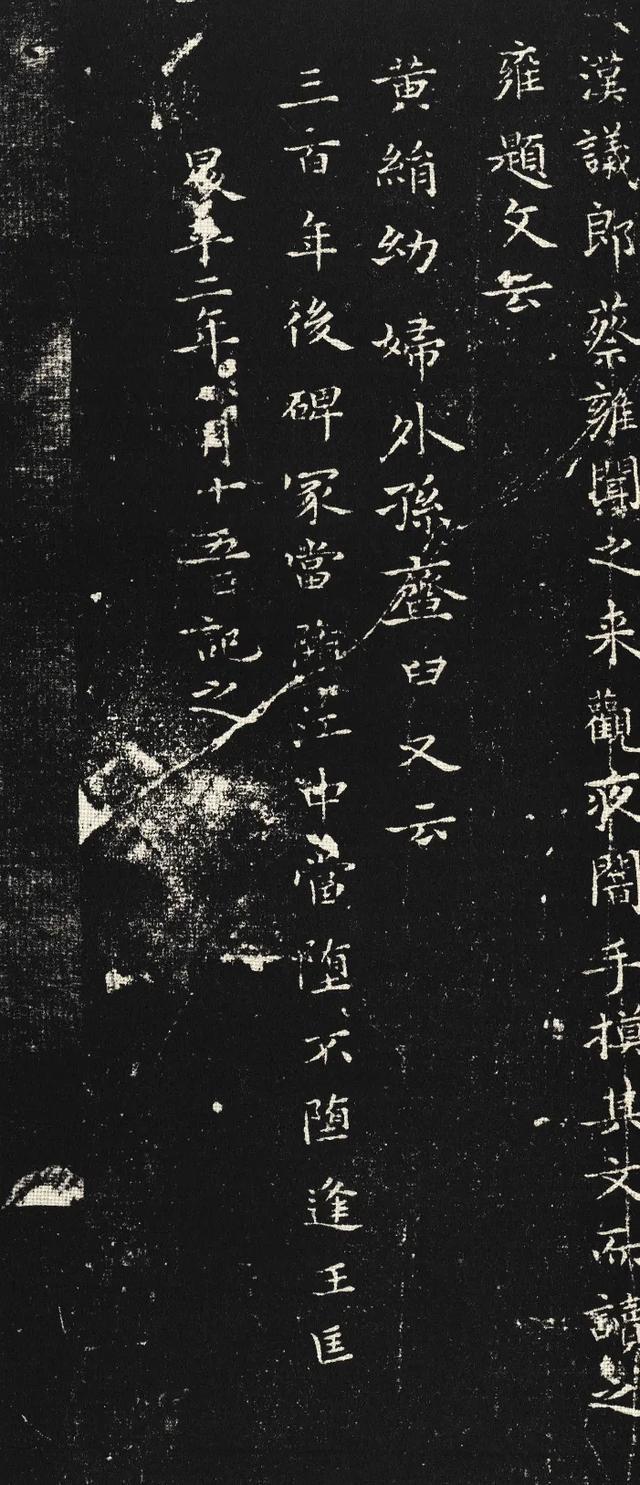 漢議郎蔡雍聞之来觀夜闇手摸其文而讀之
雍題文云
黃絹幼婦外孫齏臼又云
三百年後碑冢當墮江中當墮不墮逢王匡
年二年月十五日記之